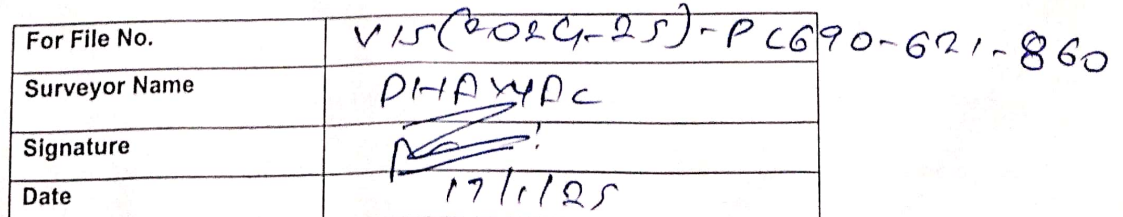 For File No. VIS(2024-25)-PC690-621-860
Surveyor Name DHAWAL
Signature
Date 17/1/25